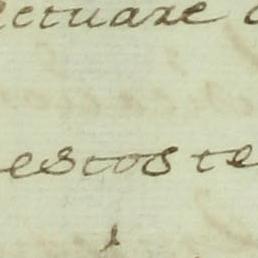 ectuaze
estos te